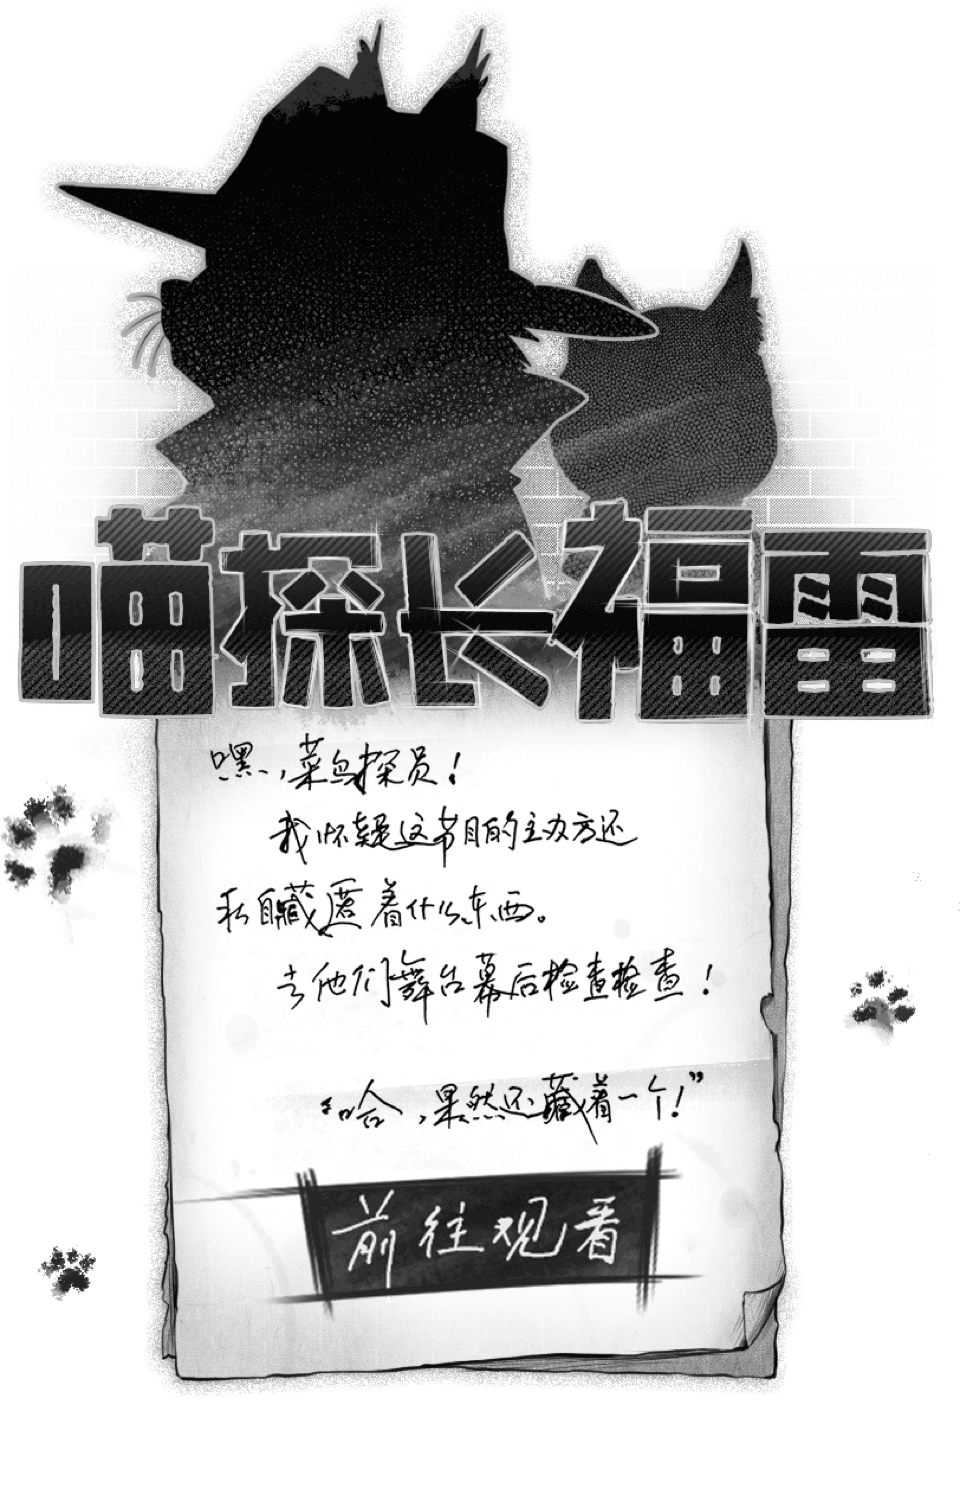 喵探长福雷
嘿,菜鸟探员!
我怀疑这节目的主办方还
私自藏匿着什么东西。
去他们舞台幕后检查检查!
“哈,果然还藏着一个!”
前往观看